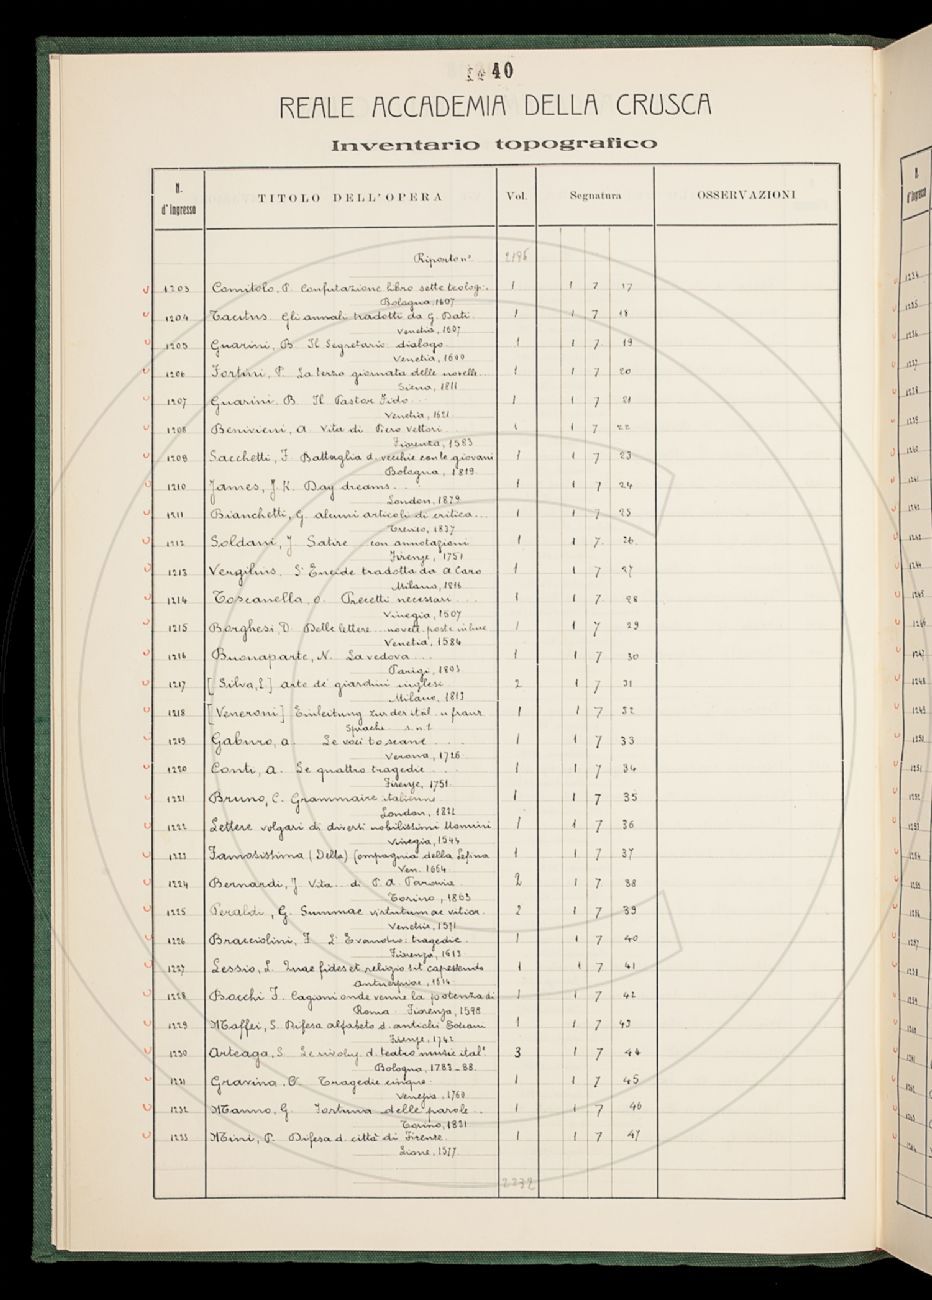 40
REALE ACCADEMIA DELLA CRUSCA
Inventario topografico
N. d'Ingresso TITOLO DELL'OPERA Vol. Segnatura OSSERVAZIONI
Riporto n° 2196
1203 Comitolo, P. Confutazione libro sette teolog. 1 1 7 17
Bologna, 1607
1204 Tacitus Gli annali tradotti da G. Dati 1 1 7 18
Venetia, 1607
1205 Guarini, B. Il Segretario dialogo 1 1 7 19
Venetia, 1600
1206 Fortini, P. La terza giornata delle novelle... 1 1 7 20
Siena, 1811
1207 Guarini, B. Il Pastor Fido... 1 1 7 21
Venetia, 1621
1208 Benivieni, A. Vita di Piero Vettori 1 1 7 22
Fiorenza, 1583
1209 Sacchetti, F. Battaglia d. vecchie con le giovani 1 1 7 23
Bologna, 1819
1210 James, J. K. Day dreams... 1 1 7 24
London, 1879
1211 Bianchetti, G. alcuni articoli di critica... 1 1 7 25
Treviso, 1837
1212 Soldani, J. Satire con annotazioni 1 1 7 26
Firenze, 1751
1213 Vergilius. L'Eneide tradotta da A. Caro 1 1 7 27
Milano, 1816
1214 Toscanella, O. Precetti necessari... 1 1 7 28
Vinegia, 1567
1215 Borghesi, D. Delle lettere... novell. poste in luce 1 1 7 29
Venetia, 1584
1216 Buonaparte, N. La vedova... 1 1 7 30
Parigi, 1803
1217 [Silva, E.] arte de' giardini inglesi 2 1 7 31
Milano, 1813
1218 [Veneroni] Einleitung zur der ital. u franz. 1 1 7 32
Sprache s.n.t.
1219 Gaburo, A. Le voci toscane.... 1 1 7 33
Verona, 1726
1220 Conti, A. Le quattro tragedie.... 1 1 7 34
Firenze, 1751
1221 Bruno, C. Grammaire italienne 1 1 7 35
London, 1822
1222 Lettere volgari di diversi nobilissimi Huomini 1 1 7 36
Vinegia, 1544
1223 Famosissima (Della) Compagnia della Lesina 1 1 7 37
Ven. 1664
1224 Bernardi, J. Vita... di P. A. Paravia 2 1 7 38
Torino, 1863
1225 Peraldi, G. Summae virtutum ac vitior. 2 1 7 39
Venetiis, 1571
1226 Bracciolini, F. L'Evandro: tragedie. 1 1 7 40
Fiorenza, 1613
1227 Lessio, L. Quae fides et religio sit capessenda 1 1 7 41
Antuerpiae,
1228 Bocchi F. Cagioni onde venne la potenza di 1 1 7 42
Roma Fiorenza, 1598
1229 Maffei, S. Difesa alfabeto d. antichi Toscani 1 1 7 43
Firenze, 1742
1230 Arteaga, S. Le rivoluz. d. teatro music ital° 3 1 7 44
Bologna, 1783-88
1231 Gravina, V. Tragedie cinque. 1 1 7 45
Venezia, 1760
1232 Manno, G. Fortuna delle parole... 1 1 7 46
Torino, 1831
1233 Mini, P. Difesa d. città di Firenze. 1 1 7 47
Lione, 1577
2232